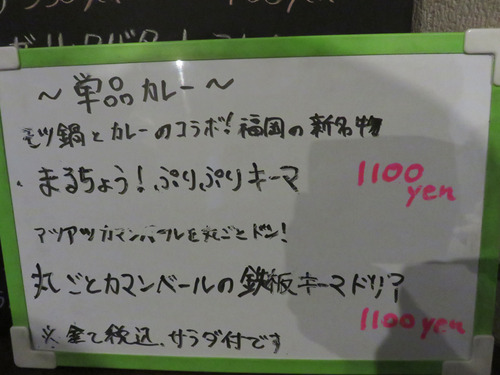 ～単品カレー～
モツ鍋とカレーのコラボ!福岡の新名物
・まるちょう!ぷりぷりキーマ 1100 yen
アツアツカマンベールを丸ごとドン!
丸ごとカマンベールの鉄板キーマドリア
1100 yen
※全て税込、サラダ付です